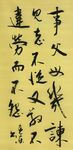 事父母幾諫
見志不從又敬不
違勞而不怨